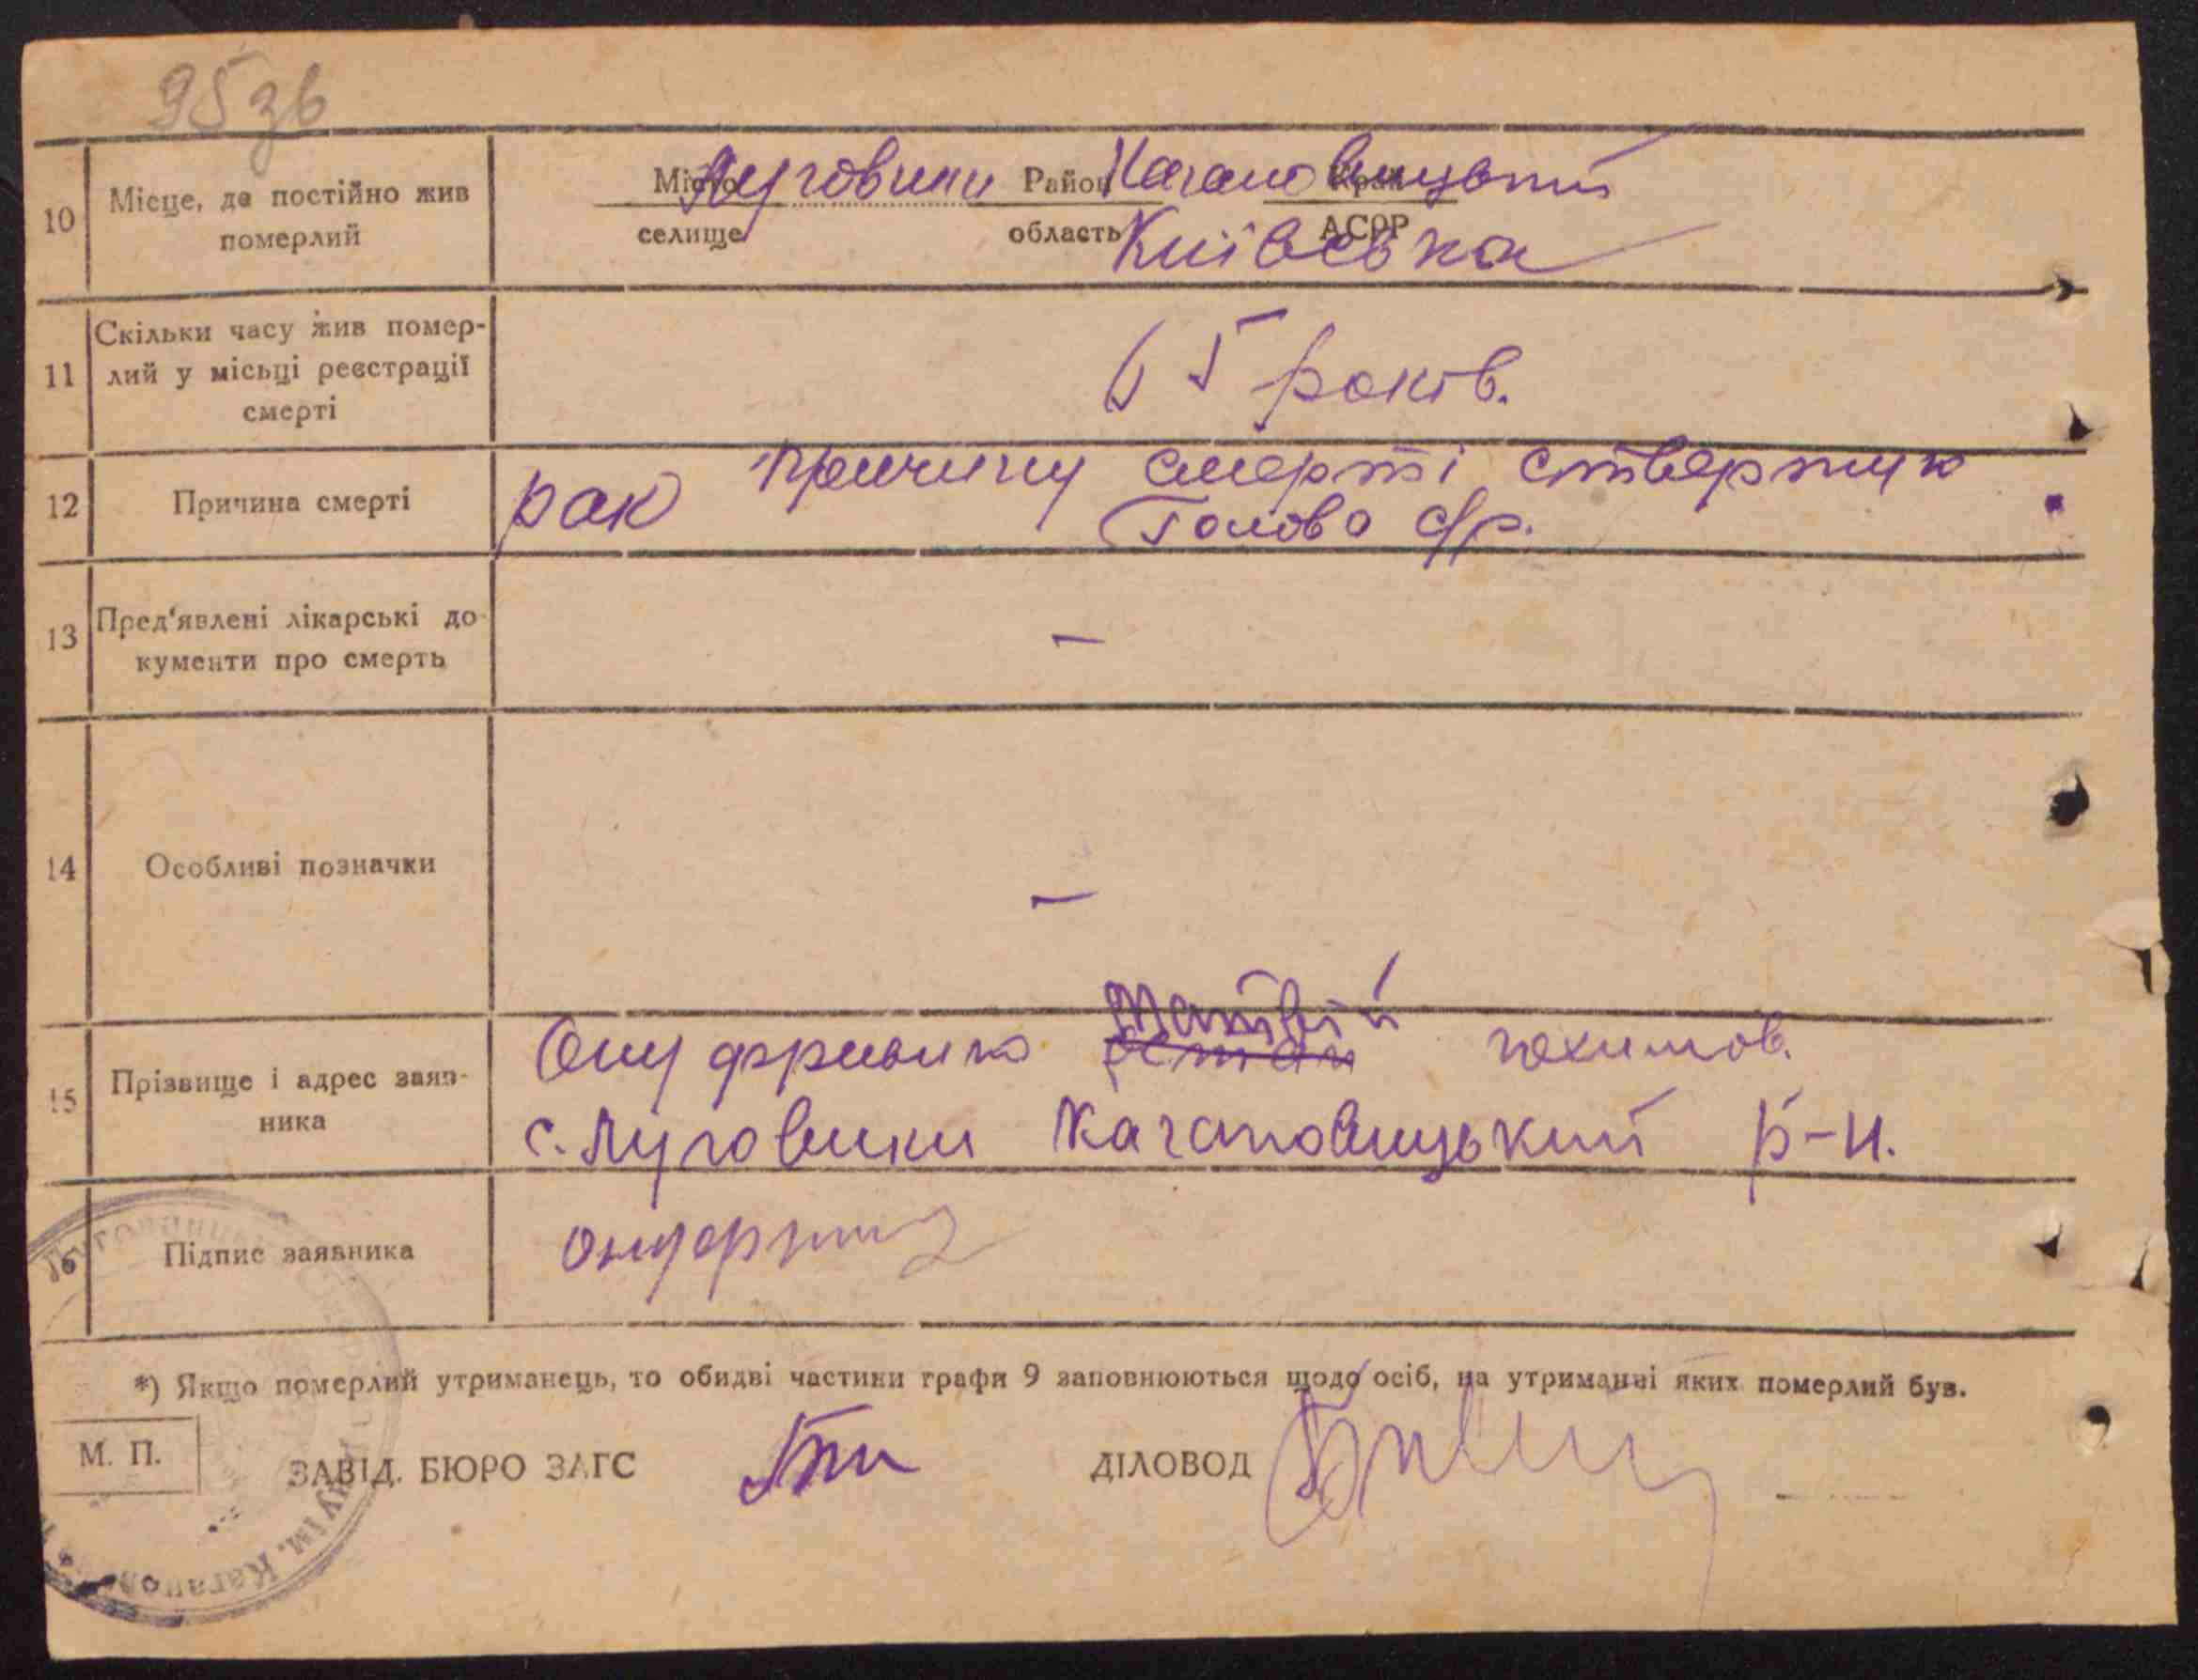 95 зв
10 Місце, де постійно жив померлий
Місто Луговики Район Кагановицький Край
селище область Київська АСРР
11 Скільки часу жив помер-
лий у місьці реєстрації
смерті
65 років.
12 Причина смерті
рак причину смерті ствержую
Голова с/р.
13 Пред'явлені лікарські до-
кументи про смерть
—
14 Особливі позначки
—
15 Прізвище і адрес заяв-
ника
Матвій
Онуфрієнко
с. Луговики Кагановицький р-н.
16 Підпис заявника
*) Якщо померлий утриманець, то обидві частини графи 9 заповнюються щодо осіб, на утриманні яких померлий був.
М. П. ЗАВІД. БЮРО ЗАГС ДІЛОВОД
ім. Каганов